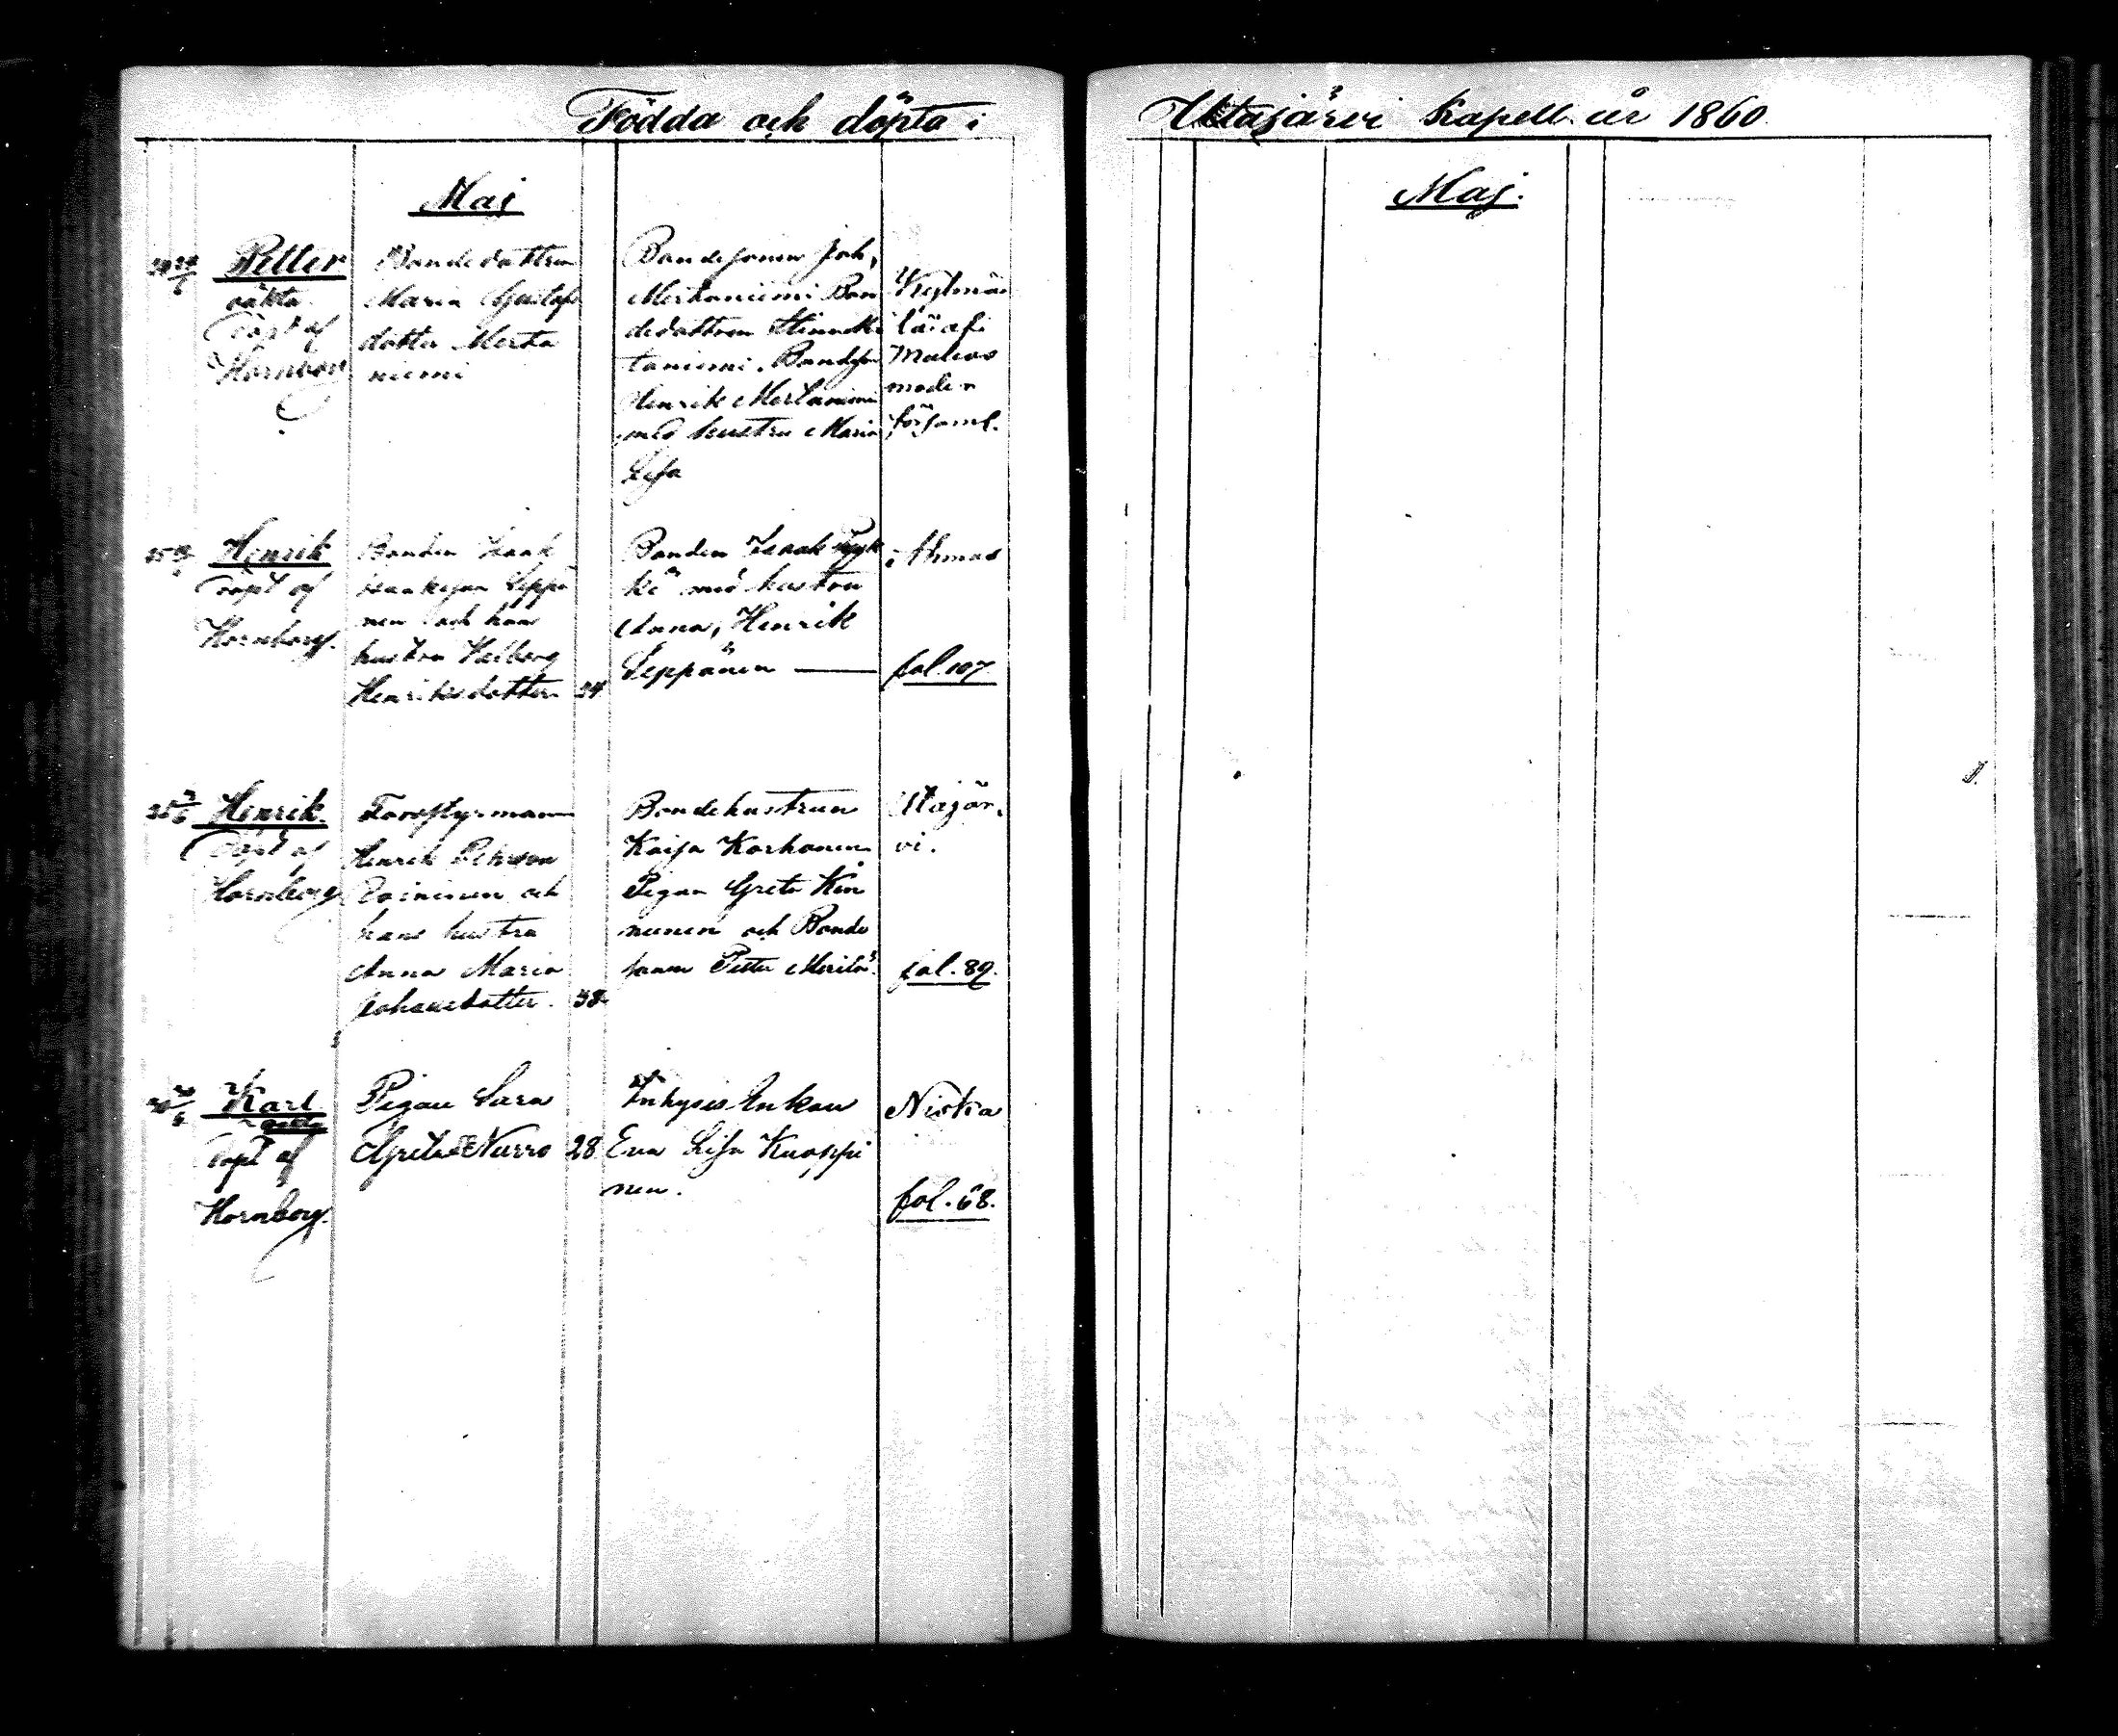 Födda och döpta i
Utajärvi Kapell år 1860.
Maj
Petter
oäkta
Döpt af
Hornborg
Bondedottren
Maria Gustafs
dotter Merta
niemi
Bondesonen Joh,
Mertaniemi Bon
dedottren
taniemi. Bondeson
Henrik Mertaniemi
med hustru Maria
Lisa
moder
församl.
Henrik
Döpt af
Hornborg.
Bonden Isaak
Seppä
nen och hans
hustru Walborg
Henriksdotter 34
Bonden Isaak Pyyk
kö med hustru
Anna, Henrik
Seppänen —
Ahmas
fol. 107.
Henrik.
Döpt af
Hornborg
Forsstyrmann
Henrik Pehrson
och
hans hustru
Anna Maria
Johansdotter. 38
Bondehustrun
Kaisa Korhonen
Pigan Greta Kin
nunen och Bonde
sonen Petter Merilä.
Utajär,
vi.
fol. 89.
Karl
oäkta
Döpt af
Hornborg.
Pigan Sara
Greta Nurro 28
Inhyses Enkan
Eva Lisa Knoppi
nen.
Niska
fol. 68.
Maj.